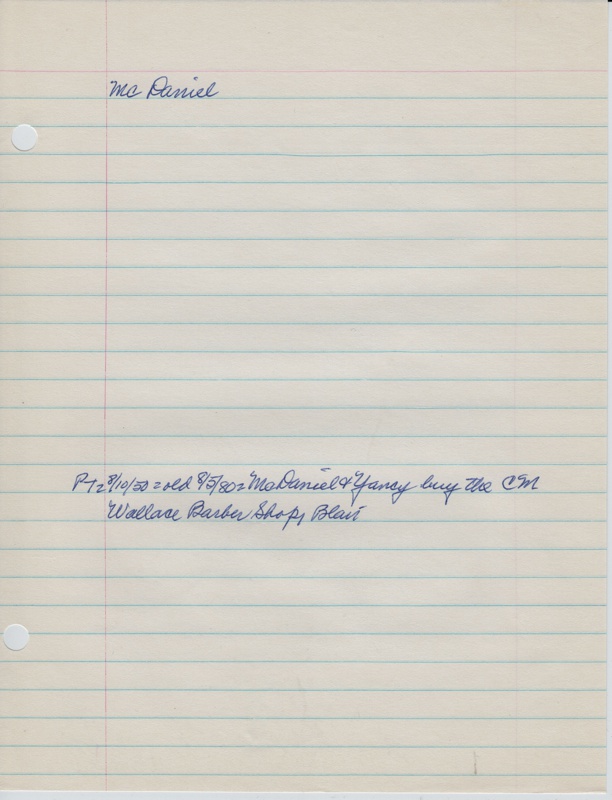 Mc Daniel
PT= 8/10/50 = old 8/5/80 = McDaniel & Yancy buy the CM
Wallace Barber Shop, Blair